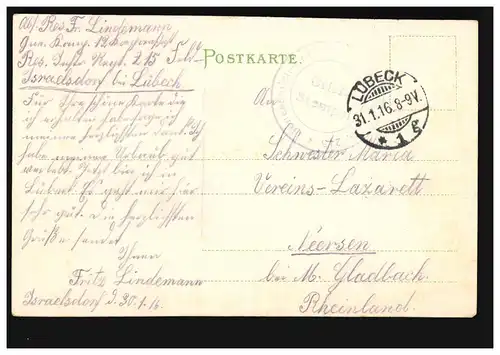 Abs. Res. Fr. Lindemann
Res. Inftr. Regt. 215
Israelsdorf bei Lübeck
POSTKARTE.
LÜBECK
31.1.16. 8-9V.
* 1 g
An
Schwester Maria
Vereins-Lazarett
Neersen
bei M. Gladbach.
Rheinland.
Für Ihre schöne Karte die
ich erhalten habe sage ich
meinen herzlichsten Dank. Ich
habe meinen Urlaub gut
verlebt. Jetzt bin ich in
Lübeck. Es gefällt mir hier
sehr gut. Die herzlichsten
Grüße sendet
Ihnen
Fritz Lindemann
Israelsdorf d. 30.1.16.